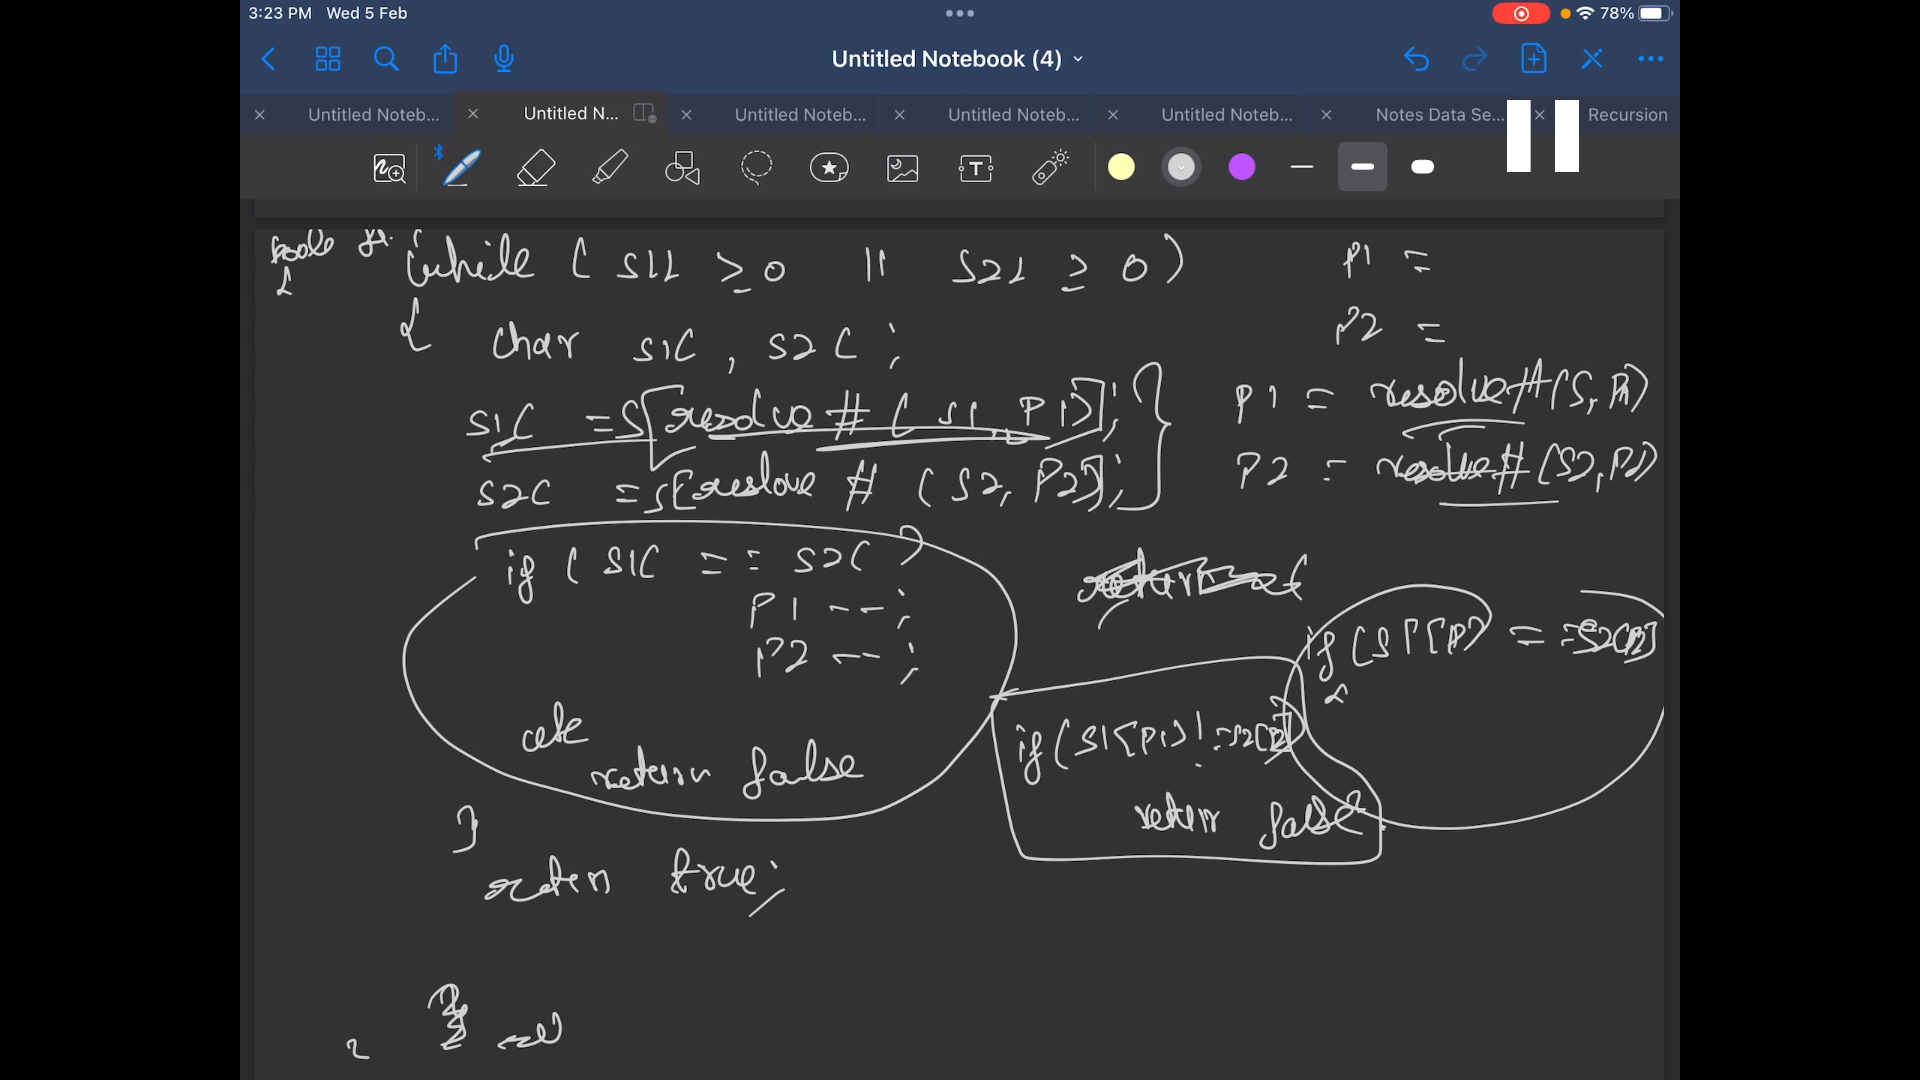 3:23 PM Wed 5 Feb
78%
Untitled Notebook (4)
Untitled Noteb...
Untitled N...
Untitled Noteb...
Untitled Noteb...
Untitled Noteb...
Notes Data Se...
Recursion
while ( S1L ≥ 0 || S2L ≥ 0 )
{ char S1C , S2C ;
S1C = S[resolve # ( S1, P1)];
S2C = S[reslove # ( S2, P2)];
}
if ( S1C == S2C )
P1 --;
P2 -- ;
else
return false
}
return true;
P1 =
P2 =
P1 = resolve#(S, P1)
P2 = resolve#(S2, P2)
if (S1[P1] == S2[P2]
{
if (S1[P1] != S2[P2]
return false